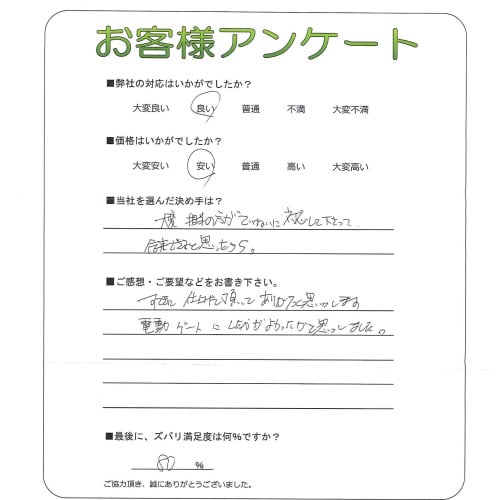 お客様アンケート
■弊社の対応はいかがでしたか？
大変良い 良い 普通 不満 大変不満
■価格はいかがでしたか？
大変安い 安い 普通 高い 大変高い
■当社を選んだ決め手は？
担当の方がていねいに対応して下さって
と思ったから。
■ご感想・ご要望などをお書き下さい。
仕上げて頂いてありがたく思いします
電動ゲートにしたがよかったかと思いしました。
■最後に、ズバリ満足度は何％ですか？
80 ％
ご協力頂き、誠にありがとうございました。